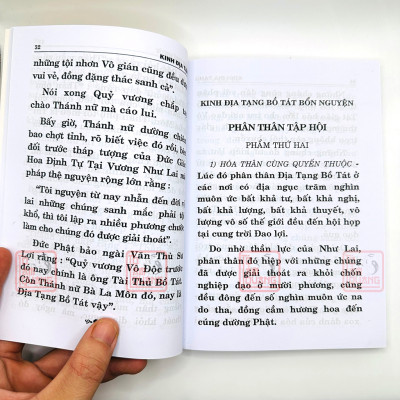 32
KINH ĐỊA
những tội nhơn Vô gián cũng đều đ
vui vẻ, đồng đặng thác sanh cả".
Nói xong Quỷ vương chấp
chào Thánh nữ mà cáo lui.
Bấy giờ, Thánh nữ dường chiêm
bao chợt tỉnh, rõ biết việc đó rồi, bèn
đối trước tháp tượng của Đức Giác
Hoa Định Tự Tại Vương Như Lai mà
pháp thệ nguyện rộng lớn rằng:
"Tôi nguyện từ nay nhẫn đến đời vị
lai những chúng sanh mắc phải tội
khổ, thì tôi lập ra nhiều phương chước
làm cho chúng đó được giải thoát".
Đức Phật bảo ngài Văn Thù Sư
Lợi rằng: "Quỷ vương Vô Độc trước
đó nay chính là ông Tài Thủ Bồ Tát.
Còn Thánh nữ Bà La Môn đó, nay là
Địa Tạng Bồ Tát vậy".
KINH ĐỊA TẠNG BỒ TÁT BỔN NGUYỆN
PHÂN THÂN TẬP HỘI
PHẨM THỨ HAI
1) HÓA THÂN CÙNG QUYẾN THUỘC -
Lúc đó phân thân Địa Tạng Bồ Tát ở
các nơi có địa ngục trăm nghìn
muôn ức bất khả tư, bất khả nghị,
bất khả lượng, bất khả thuyết, vô
lượng vô số thế giới đều đến hội họp
tại cung trời Đao lợi.
Do nhờ thần lực của Như Lai,
phân thân đó hiệp với những chúng
đã được giải thoát ra khỏi chốn
nghiệp đạo ở mười phương, cũng
đều đông đến số nghìn muôn ức na
do tha, đồng cầm hương hoa đến
cúng dường Phật.